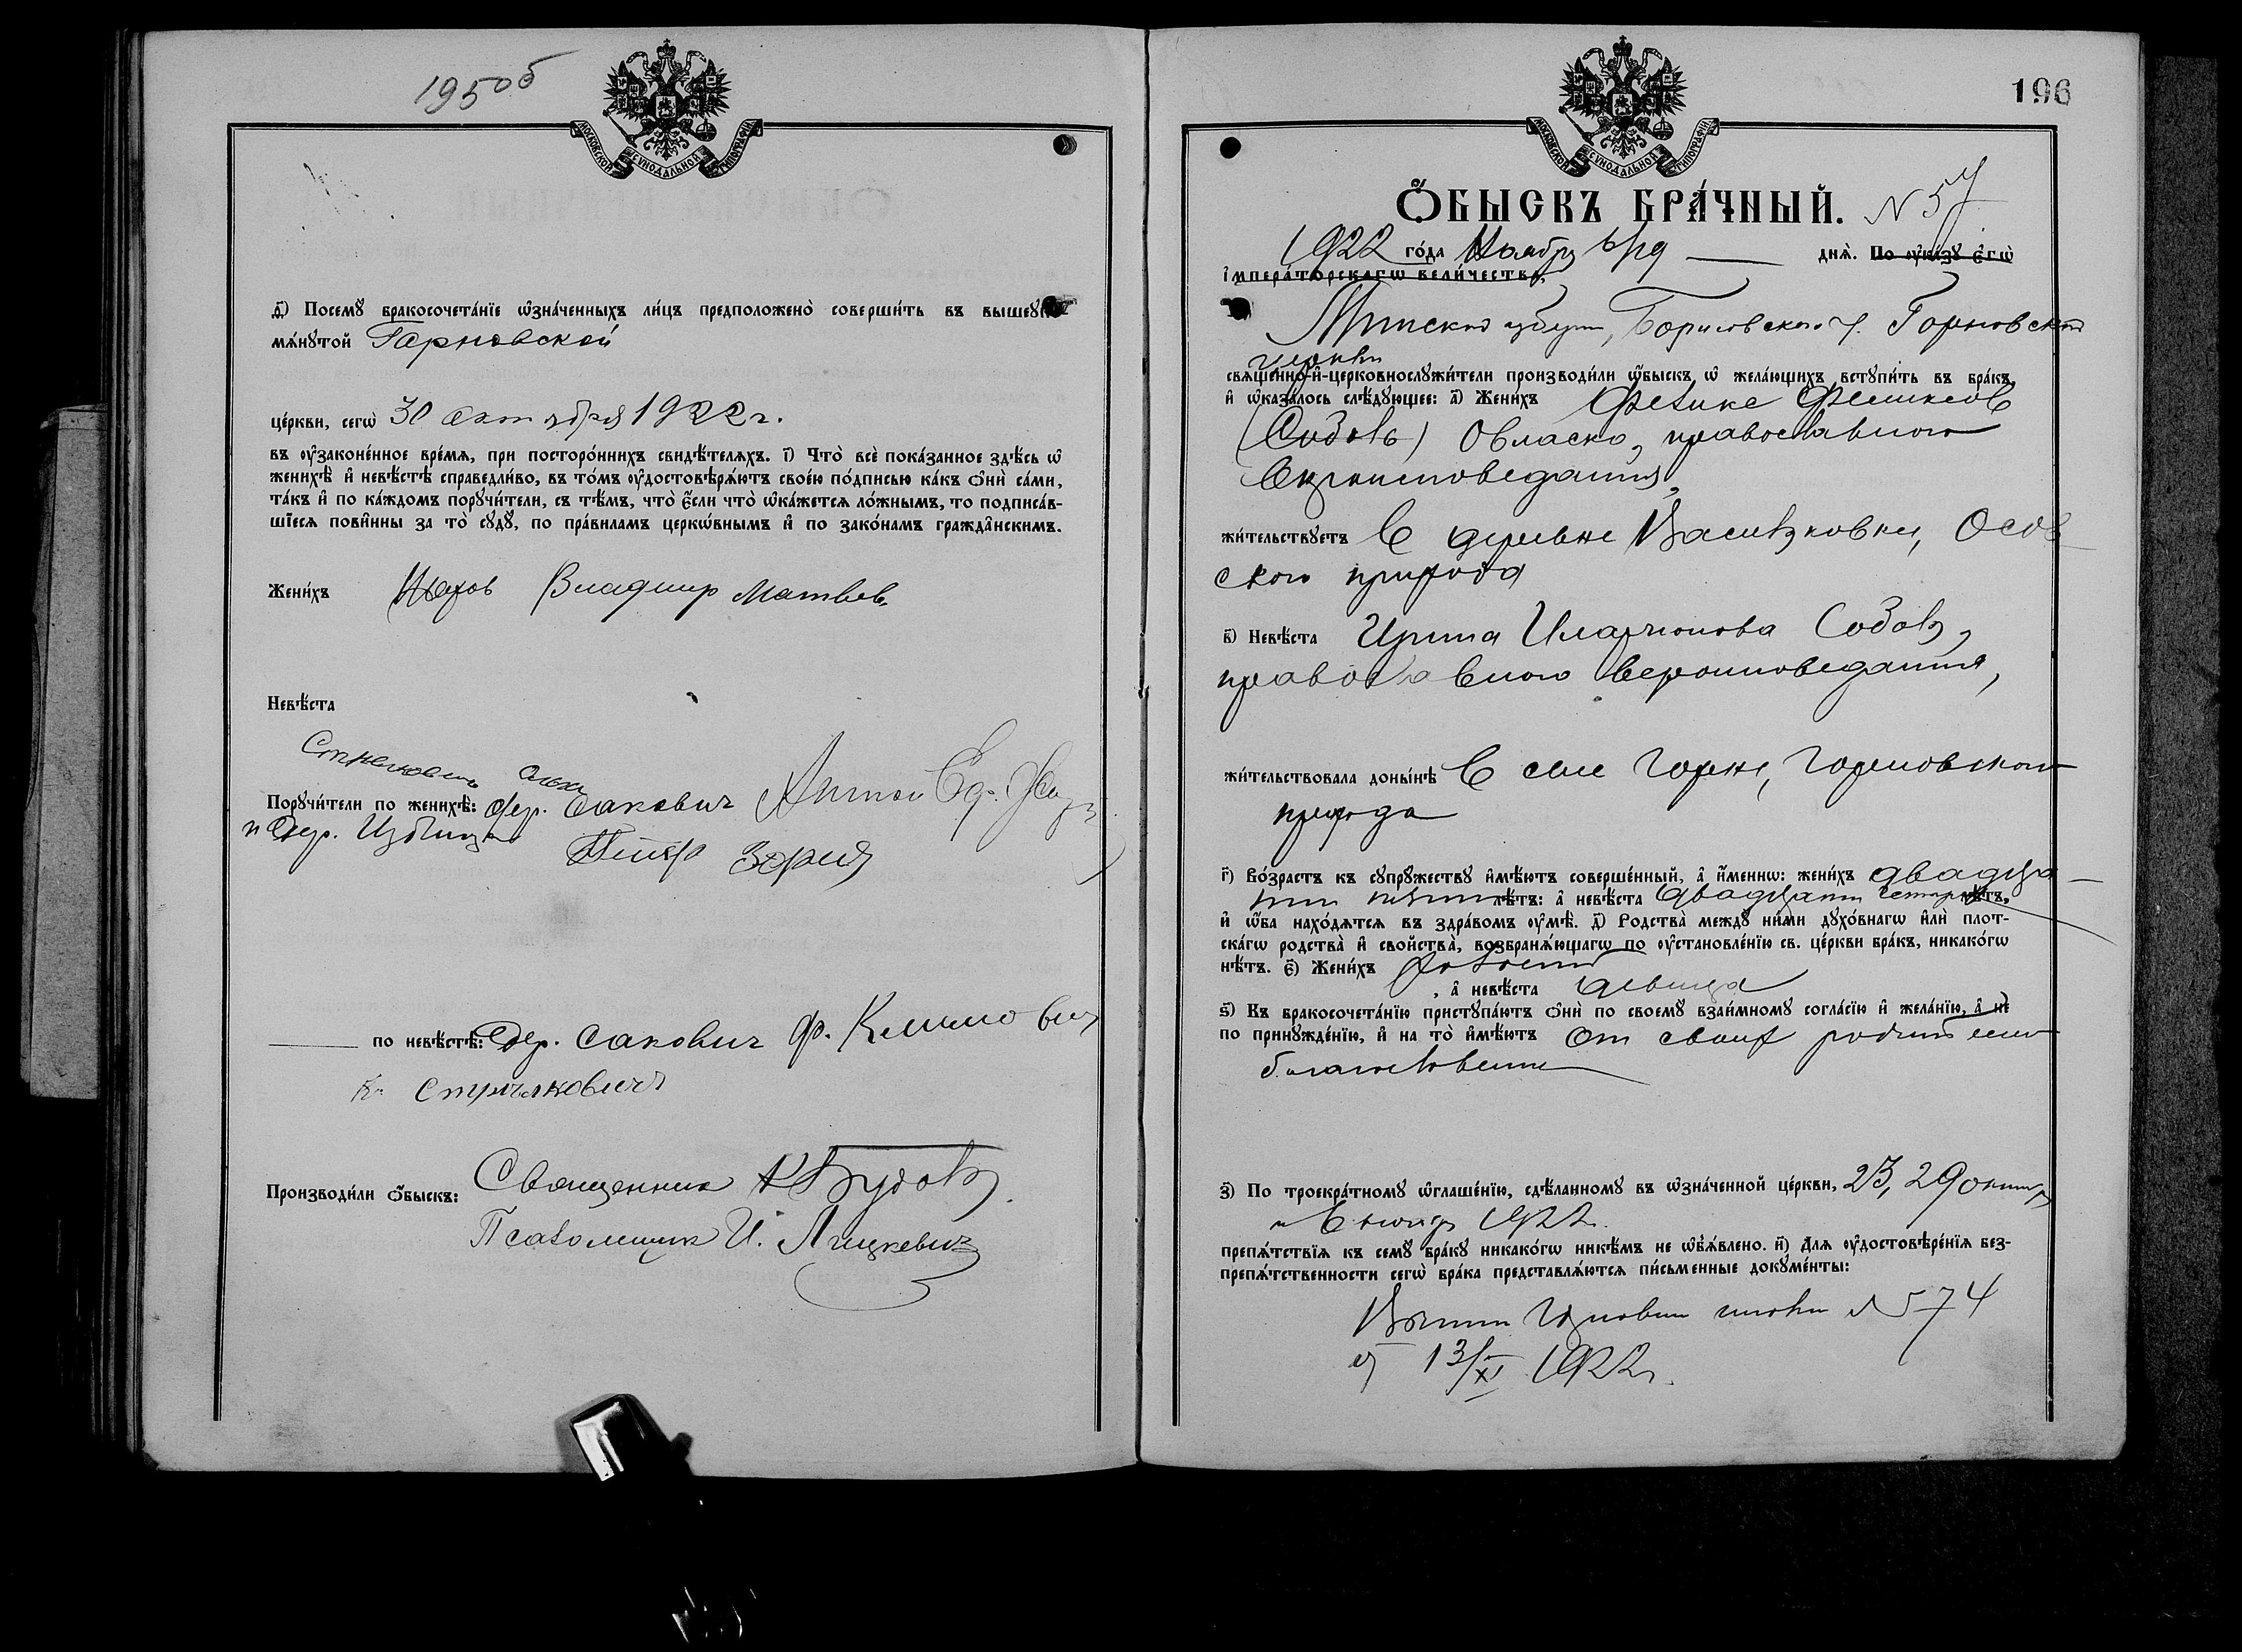 195об
МОСКОВСКОЙ СѴНОДАЛЬНОЙ ТИПОГРАФІИ
д҃) Посемꙋ̀ бракосочета́нїе ѡ҆зна́ченныхъ ли́цъ предположено̀ соверши́ть въ вышеꙋпо-
мѧ́нꙋтой Гарновской
це́ркви, сегѡ̀ 30 октября 1922 г.
въ ᲂу҆законе́нное вре́мѧ, при посторо́ннихъ свидѣ́телѧхъ. і҃) Что̀ всѐ пока́занное здѣ́сь ѡ҆
женихѣ̀ и҆ невѣ́стѣ справедли́во, въ то́мъ ᲂу҆достовѣрѧ́ютъ свое́ю по́дписью ка́къ ѻ҆нѝ са́ми,
та́къ и҆ по ка́ждомъ порꙋчи́тели, съ тѣ́мъ, что̀ є҆́сли что̀ ѡ҆ка́жетсѧ ло́жнымъ, то подписа́в-
шїесѧ пови́нны за то̀ сꙋдꙋ̀, по пра́виламъ церкѡ́внымъ и҆ по зако́намъ гражда́нскимъ.
Жени́хъ Владимир Матвев.
Невѣ́ста
Порꙋчи́тели по женихѣ̀: дер. Сакович Антон
и дер. Петр Зория
по невѣ́стѣ: Дер. Сакович ф. Климович
Стрѣлкович
Производи́ли ѻ҆́быскъ: Священник
Псаломщик И.
196
МОСКОВСКОЙ СѴНОДАЛЬНОЙ ТИПОГРАФІИ
Ѻ҆́БЫСКЪ БРА́ЧНЫЙ. N 57
1922 го́да Ноября 6/19 днѧ̀. По ᲂу҆ка́зꙋ є҆гѡ̀
і҆мпера́торскагѡ вели́чества,
Минской губерн, Борисовского у. Горновской
церкви
свѧще́нно-и҆-церковнослꙋжи́тели производи́ли ѡ҆́быскъ ѡ҆ жела́ющихъ встꙋпи́ть въ бра́къ,
и҆ ѡ҆каза́лось слѣ́дꙋющее: а҃) Жени́хъ Феликс Феликсов
православного
вероисповедания,
жи́тельствꙋетъ в деревне Васильковке, Осов
ского прихода
в҃) Невѣ́ста Ирина Иларионова
православного вероисповедания,
жи́тельствовала доны́нѣ в селе Горне, Горновского
прихода
г҃) Во́зрастъ къ сꙋпрꙋ́жествꙋ и҆мѣ́ютъ соверше́нный, а҆ и҆́меннѡ: жени́хъ двадца
ти пяти лѣ́тъ: а҆ невѣ́ста двадцати четыр лѣ́тъ,
и҆ ѡ҆́ба нахо́дѧтсѧ въ здра́вомъ ᲂу҆мѣ̀. д҃) Родства̀ междꙋ̀ ни́ми дꙋхо́внагѡ и҆лѝ плот-
ска́гѡ родства̀ и҆ сво́йства, возбранѧ́ющагѡ по ᲂу҆становле́нїю св. це́ркви бра́къ, никако́гѡ
нѣ́тъ. є҃) Жени́хъ холост
, а҆ невѣ́ста девица
ѕ҃) Къ бракосочета́нїю пристꙋпа́ютъ ѻ҆нѝ по своемꙋ̀ взаи́мномꙋ согла́сїю и҆ жела́нїю, а҆ не
по принꙋжде́нїю, и҆ на то̀ и҆мѣ́ютъ от своих родителей
благословение
з҃) По троекра́тномꙋ ѡ҆глаше́нїю, сдѣ́ланномꙋ въ ѡ҆зна́ченной це́ркви, 23, 29 октября
и 6 ноября 1922 г.
препѧ́тствїѧ къ семꙋ̀ бра́кꙋ никако́гѡ никѣ́мъ не ѡ҆бъѧ́влено. и҃) Длѧ ᲂу҆достовѣре́нїѧ без-
препѧ́тственности сегѡ̀ бра́ка представлѧ́ютсѧ пи́сьменные докꙋме́нты:
N 574
13/XI 1922 г.